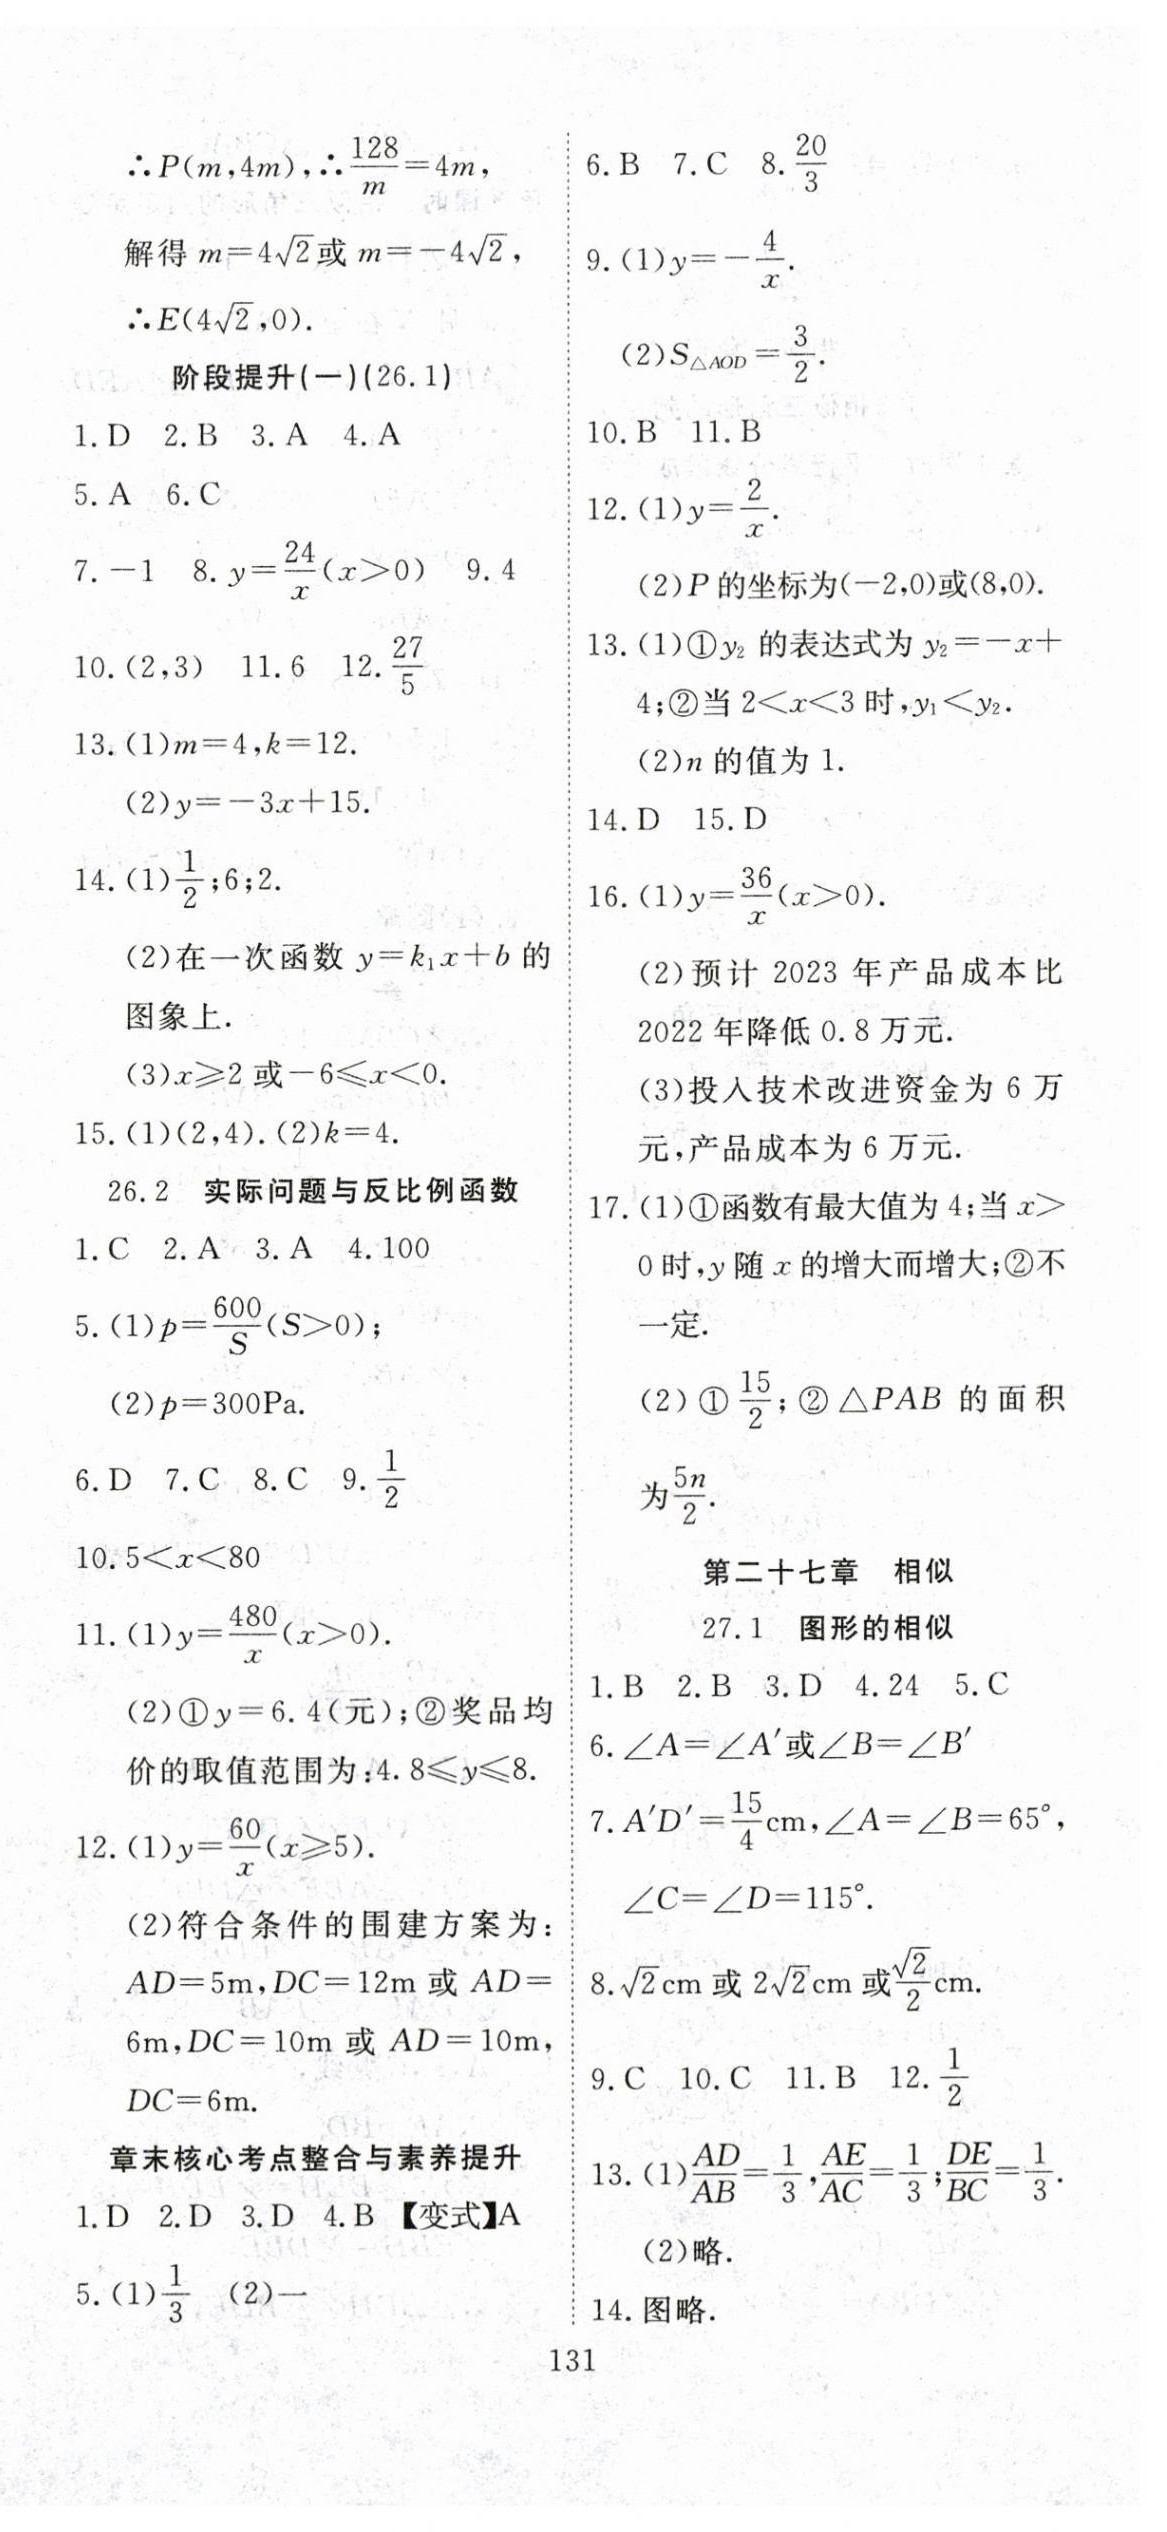 ∴P(m,4m),∴128/m=4m,
解得 m=4√2或 m=-4√2,
∴E(4√2,0).
阶段提升(一)(26.1)
1.D 2.B 3.A 4.A
5.A 6.C
7.-1 8.y=24/x(x>0) 9.4
10.(2,3) 11.6 12.27/5
13.(1)m=4,k=12.
(2)y=-3x+15.
14.(1)1/2;6;2.
(2)在一次函数 y=k₁x+b 的
图象上.
(3)x≥2 或-6≤x<0.
15.(1)(2,4).(2)k=4.
26.2 实际问题与反比例函数
1.C 2.A 3.A 4.100
5.(1)p=600/S(S>0);
(2)p=300Pa.
6.D 7.C 8.C 9.1/2
10.5<x<80
11.(1)y=480/x(x>0).
(2)①y=6.4(元);②奖品均
价的取值范围为:4.8≤y≤8.
12.(1)y=60/x(x≥5).
(2)符合条件的围建方案为:
AD=5m,DC=12m 或 AD=
6m,DC=10m 或 AD=10m,
DC=6m.
章末核心考点整合与素养提升
1.D 2.D 3.D 4.B 【变式】A
5.(1)1/3 (2)一
6.B 7.C 8.20/3
9.(1)y=-4/x.
(2)S△AOD=3/2.
10.B 11.B
12.(1)y=2/x.
(2)P 的坐标为(-2,0)或(8,0).
13.(1)①y₂ 的表达式为 y₂=-x+
4;②当 2<x<3 时,y₁<y₂.
(2)n 的值为 1.
14.D 15.D
16.(1)y=36/x(x>0).
(2)预计 2023 年产品成本比
2022 年降低 0.8 万元.
(3)投入技术改进资金为 6 万
元,产品成本为 6 万元.
17.(1)①函数有最大值为 4;当 x>
0 时,y 随 x 的增大而增大;②不
一定.
(2)①15/2;②△PAB 的面积
为5n/2.
第二十七章 相似
27.1 图形的相似
1.B 2.B 3.D 4.24 5.C
6.∠A=∠A′或∠B=∠B′
7.A′D′=15/4cm,∠A=∠B=65°,
∠C=∠D=115°.
8.√2cm 或 2√2cm 或√2/2cm.
9.C 10.C 11.B 12.1/2
13.(1)AD/AB=1/3,AE/AC=1/3;DE/BC=1/3.
(2)略.
14.图略.
131